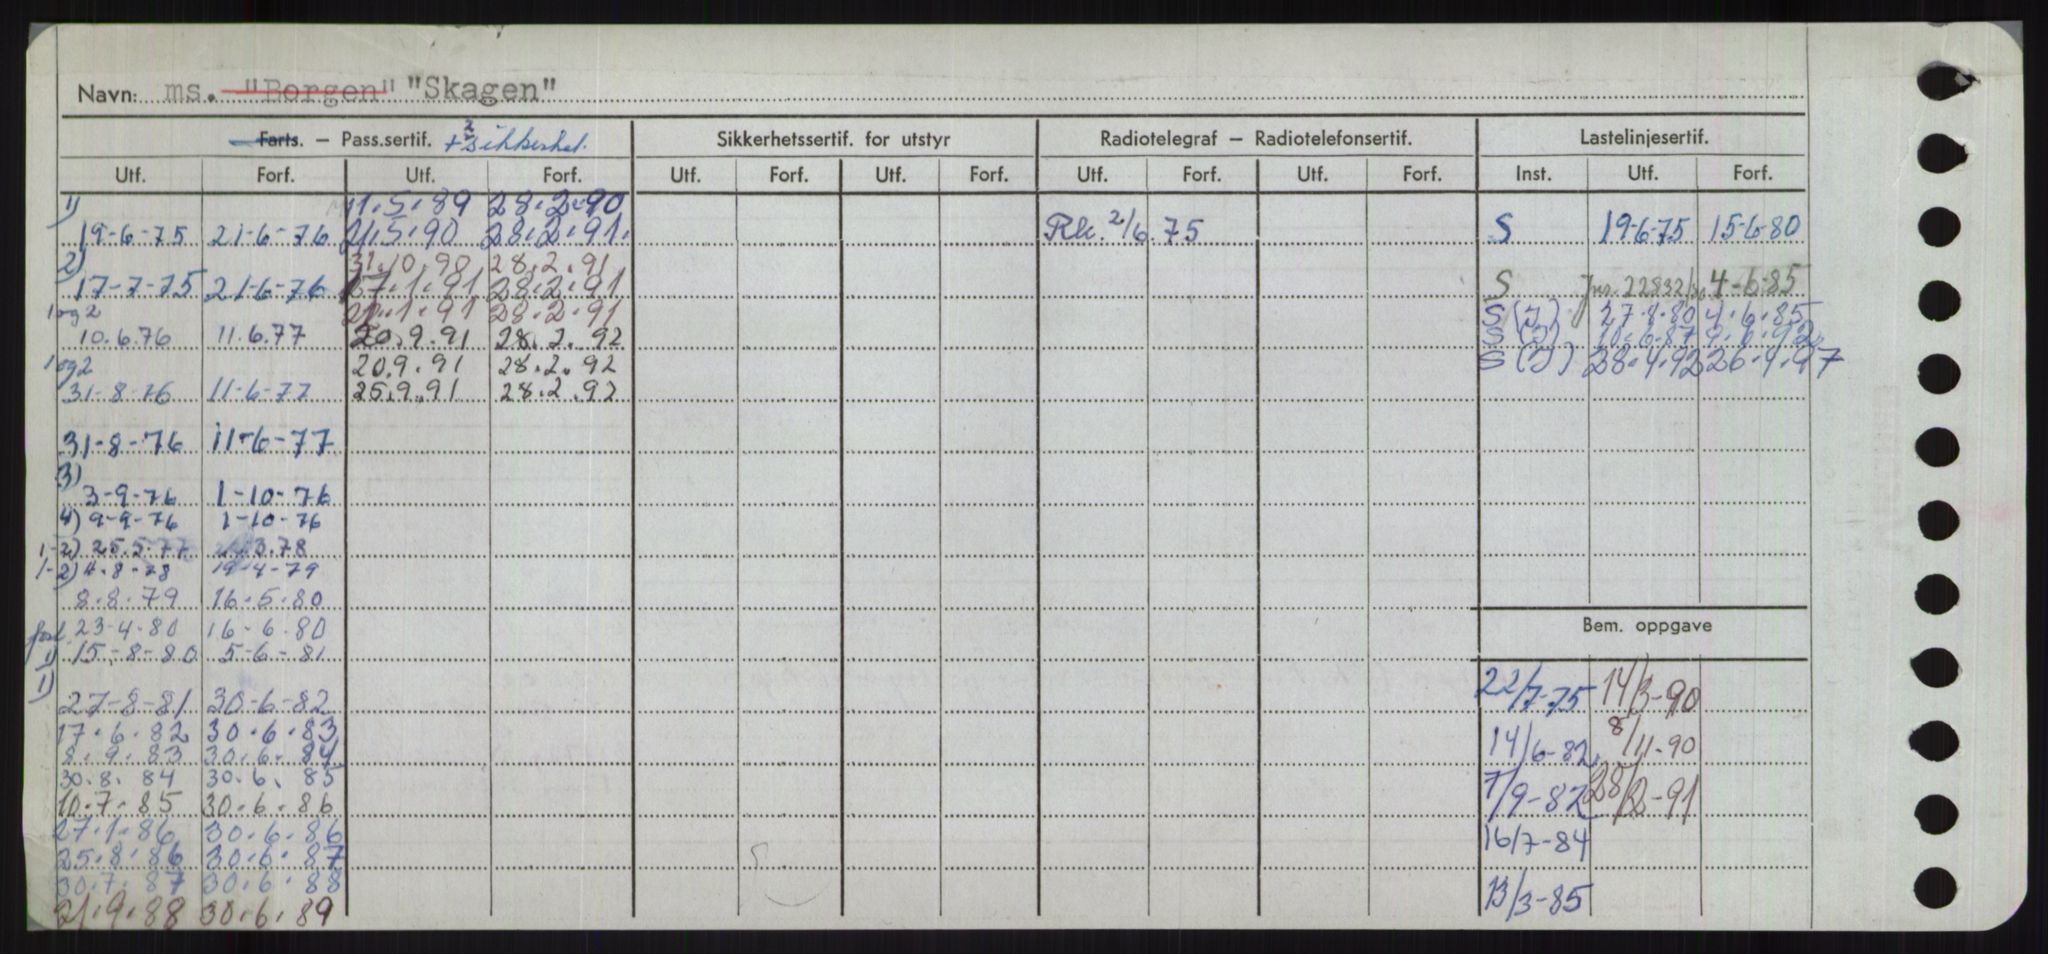 Navn: ms. "Borgen" "Skagen"
Farts. – Pass.sertif. + 2 sikkerhet.
Sikkerhetssertif. for utstyr
Radiotelegraf – Radiotelefonsertif.
Lastelinjesertif.
Utf. Forf. Utf. Forf. Utf. Forf. Utf. Forf. Utf. Forf. Utf. Forf. Inst. Utf. Forf.
1) 11.5.89 28.2.90
19-6-75 21-6-76 21.5.90 28.2.91. Rk. 2/6.75 S 19-6-75 15-6-80
2) 31.10.90 28.2.91
17-7-75 21-6-76 17.1.91 28.2.91 S Jnr. 22832/80 4-6-85
1og2 28.2.91 S (J) 27.8.80 4.6.85
10.6.76 11.6.77 20.9.91 28.2.92 S (J) 10.6.87
1og2 20.9.91 28.2.92 S (J) 28.4.92 26.4.97
31-8-76 11-6-77 25.9.91 28.2.92
31-8-76 11-6-77
3)
3-9-76 1-10-76
4) 9-9-76 1-10-76
1-2) 25.5.77 3.78
1-2) 4-8-78 19-4-79
8.8.79 16.5.80
forl. 23-4-80 16-6.80
Bem. oppgave
1) 15-8-80 5-6-81
1)
27-8-81 30-6-82 22/7-75 14/3-90
17.6.82 30.6.83
8.9.83 30.6.84 14/6-82 8/11-90
30.8.84 30.6.85
10.7.85 30.6.86 7/9-82 28/2-91
27.1.86 30.6.86
25.8.86 30.6.87 16/7-84
30.7.87 30.6.88
21.9.88 30.6.89 13/3-85